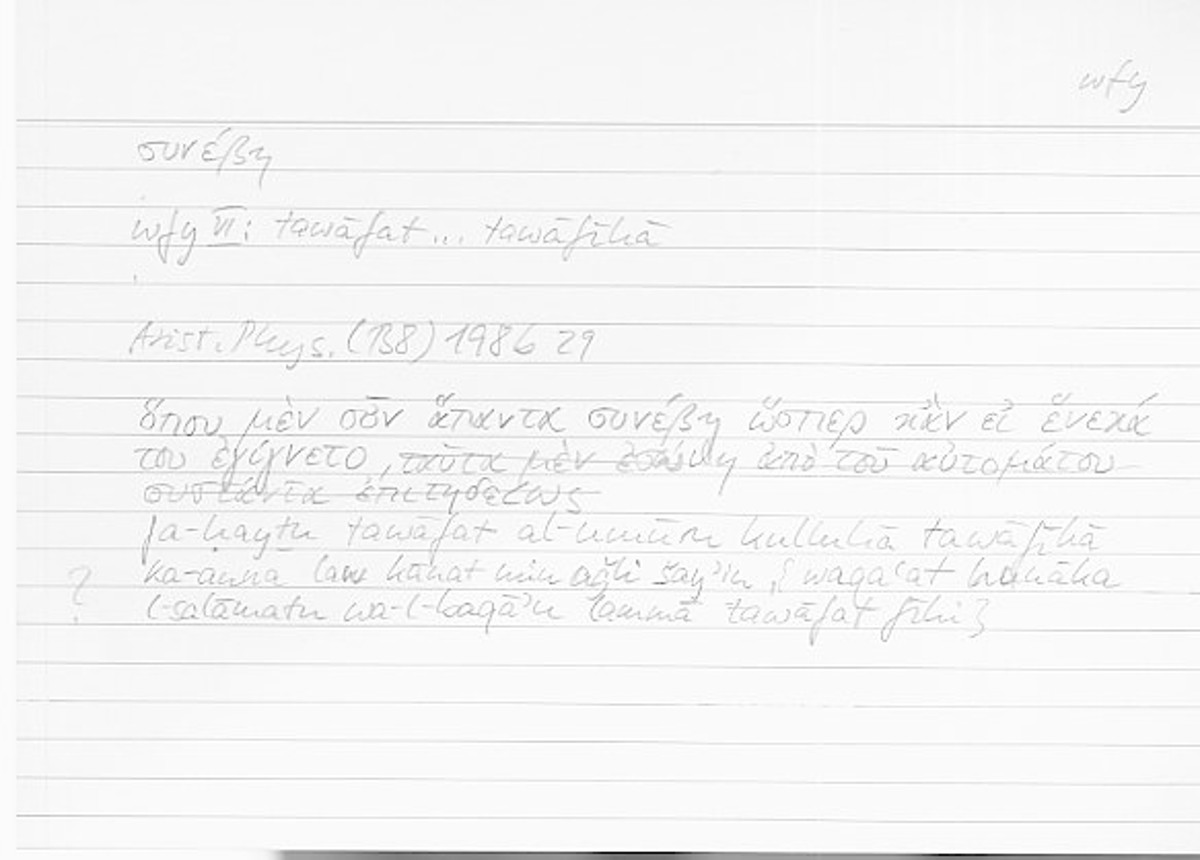 wfy
συνέβη
wfy VI: tawāfat ... tawāfīhā
Arist. Phys. (B8) 198b 29
ὅπου μὲν οὖν ἅπαντα συνέβη ὥσπερ κἂν εἰ ἕνεκά
του ἐγίγνετο, ταῦτα μὲν ἐσώθη ἀπὸ τοῦ αὐτομάτου
συστάντα ἐπιτηδείως
fa-ḥaytu tawāfat al-umūru kulluhā tawāfīhā
ka-anna law kānat min aǧli šayʾin, { waqaʿat hunāka
? l-salāmatu wa-l-baqāʾu lammā tawāfat fīhi }